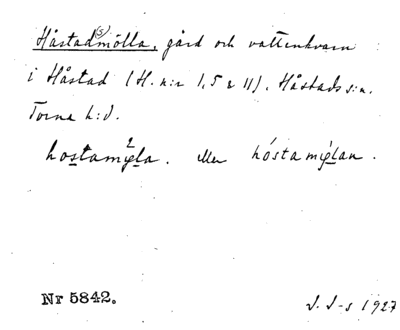 Håstad(s)mölla, gård och vattenkvarn
i Håstad (H. n:r 1, 5 & 11). Håstads s:n.
Torna h:d.
hostamýla. Mer hóstamýlan.
Nr 5842.
J. J-s 1927